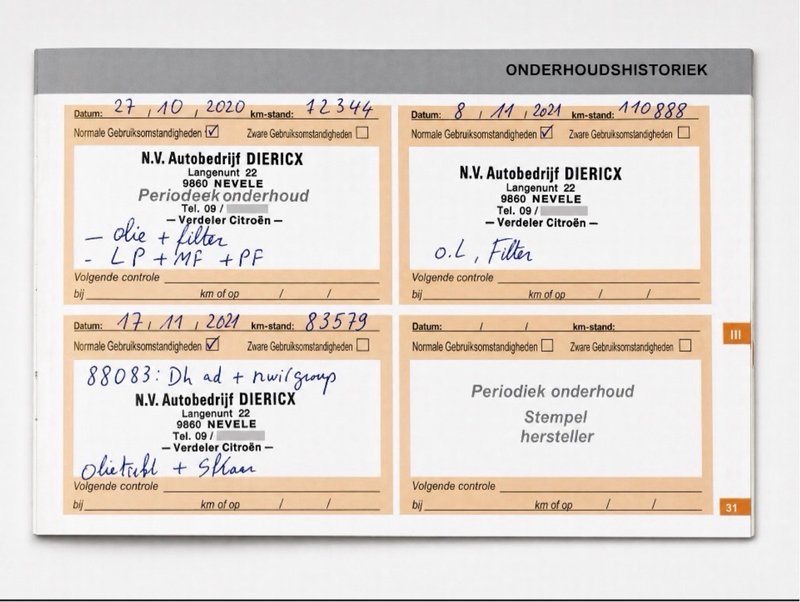 ONDERHOUDSHISTORIEK
Datum: 27 , 10 , 2020 km-stand: 72344
Normale Gebruiksomstandigheden ☑ Zware Gebruiksomstandigheden ☐
N.V. Autobedrijf DIERICX
Langenunt 22
9860 NEVELE
Periodeek onderhoud
Tel. 09 /
— Verdeler Citroën —
— olie + filter
- LP + MF + PF
Volgende controle
bij km of op / /
Datum: 8 , 11 , 2021 km-stand: 110888
Normale Gebruiksomstandigheden ☑ Zware Gebruiksomstandigheden ☐
N.V. Autobedrijf DIERICX
Langenunt 22
9860 NEVELE
Tel. 09 /
— Verdeler Citroën —
O.L, Filter
Volgende controle
bij km of op / /
Datum: 17 , 11 , 2021 km-stand: 83579
Normale Gebruiksomstandigheden ☑ Zware Gebruiksomstandigheden ☐
88083: Dh ad +
N.V. Autobedrijf DIERICX
Langenunt 22
9860 NEVELE
Tel. 09 /
— Verdeler Citroën —
Volgende controle
bij km of op / /
Datum: / / km-stand:
Normale Gebruiksomstandigheden ☐ Zware Gebruiksomstandigheden ☐
Periodiek onderhoud
Stempel
hersteller
Volgende controle
bij km of op / /
III
31